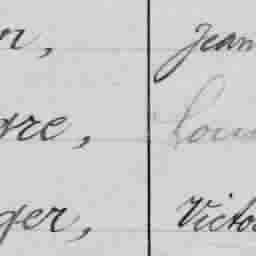 n, Jean
gre, Loui
ger, Victo